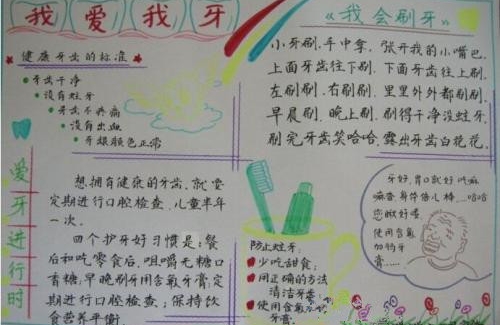 我爱我牙
健康牙齿的标准
牙齿干净
没有蛀牙
牙齿不疼痛
没有出血
牙龈颜色正常
《我会刷牙》
小牙刷,手中拿,张开我的小嘴巴.
上面牙齿往下刷.下面牙齿往上刷.
左刷刷.右刷刷.里里外外都刷刷.
早晨刷.晚上刷.刷得干净没蛀牙.
刷完牙齿笑哈哈.露出牙齿白花花.
爱牙进行时
想拥有健康的牙齿,就要
定期进行口腔检查.儿童半年
一次.
四个护牙好习惯是:餐
后和吃零食后,咀嚼无糖口
香糖;早晚刷牙用含氟牙膏;定
期进行口腔检查;保持饮
食营养平衡.
防止蛀牙:
少吃甜食;
用正确的方法
清洁牙齿;
使用含氟
牙膏.
牙好,胃口就好,吃嘛
嘛香,身体倍儿棒……哈哈
使用含氟
牙膏……